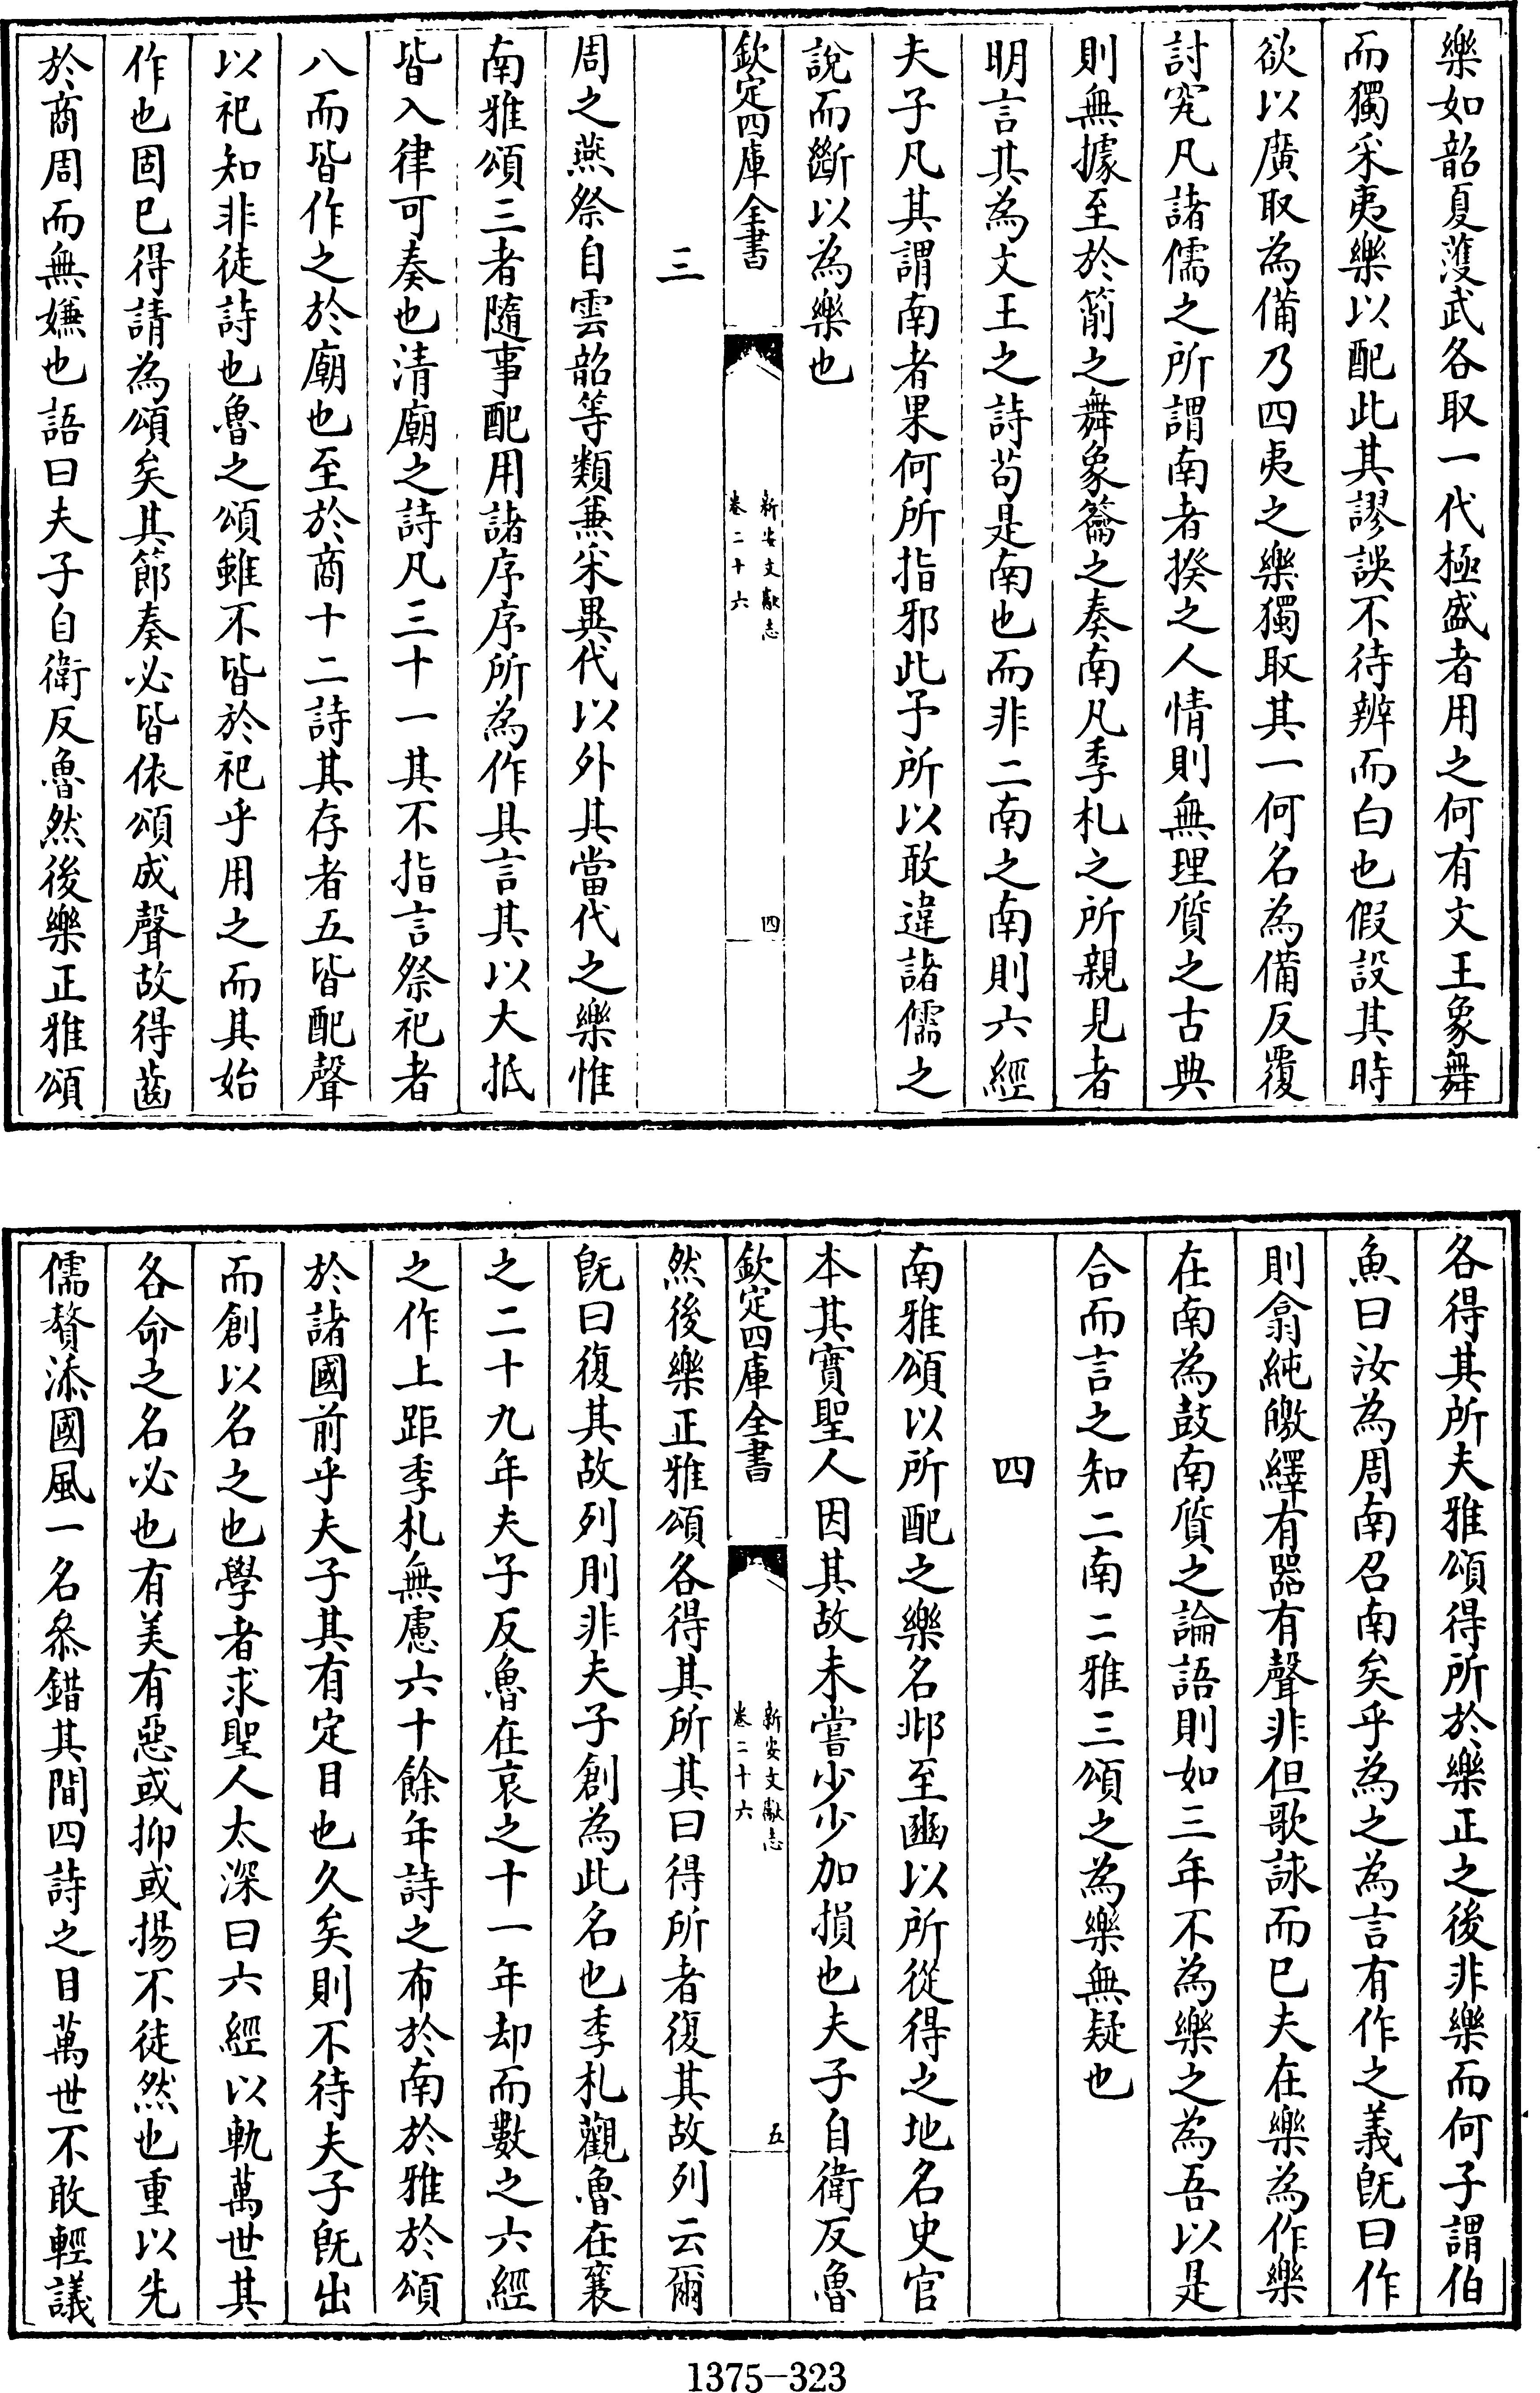 樂如韶夏濩武各取一代極盛者用之何有文王象舞
而獨采夷樂以配此其謬誤不待辨而白也假設其時
欲以廣取為備乃四夷之樂獨取其一何名為備反覆
討究凡諸儒之所謂南者揆之人情則無理質之古典
則無據至於箾之舞象籥之奏南凡季札之所親見者
明言其為文王之詩苟是南也而非二南之南則六經
夫子凡其謂南者果何所指邪此予所以敢違諸儒之
說而斷以為樂也
欽定四庫全書
新安文獻志
卷二十六
四
三
周之燕祭自雲韶等類兼采異代以外其當代之樂惟
南雅頌三者隨事配用諸序序所為作其言其以大抵
皆入律可奏也清廟之詩凡三十一其不指言祭祀者
八而皆作之於廟也至於商十二詩其存者五皆配聲
以祀知非徒詩也魯之頌雖不皆於祀乎用之而其始
作也固巳得請為頌矣其節奏必皆依頌成聲故得齒
於商周而無嫌也語曰夫子自衛反魯然後樂正雅頌
各得其所夫雅頌得所於樂正之後非樂而何子謂伯
魚曰汝為周南召南矣乎為之為言有作之義旣曰作
則翕純皦繹有器有聲非但歌詠而巳夫在樂為作樂
在南為鼓南質之論語則如三年不為樂之為吾以是
合而言之知二南二雅三頌之為樂無疑也
四
南雅頌以所配之樂名邶至豳以所從得之地名史官
本其實聖人因其故未嘗少少加損也夫子自衛反魯
欽定四庫全書
新安文獻志
卷二十六
五
然後樂正雅頌各得其所其曰得所者復其故列云爾
旣曰復其故列則非夫子創為此名也季札觀魯在襄
之二十九年夫子反魯在哀之十一年却而數之六經
之作上距季札無慮六十餘年詩之布於南於雅於頌
於諸國前乎夫子其有定目也久矣則不待夫子旣出
而創以名之也學者求聖人太深曰六經以軌萬世其
各命之名必也有美有惡或抑或揚不徒然也重以先
儒贅添國風一名叅錯其間四詩之目萬世不敢輕議
1375-323